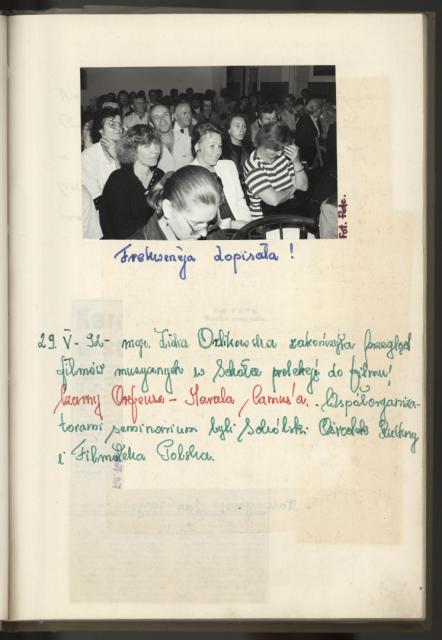 Fot. Pole.
Frekwencja dopisała !
29. V - 92 - mgr. Lidia Orlikowska zakończyła przegląd
filmów muzycznych w Sokółce prelekcją do filmu
Czarny Orfeusz - Marcela Camus'a. Współorganiza-
torami seminarium byli Sokólski Ośrodek Kultury
i Filmoteka Polska.